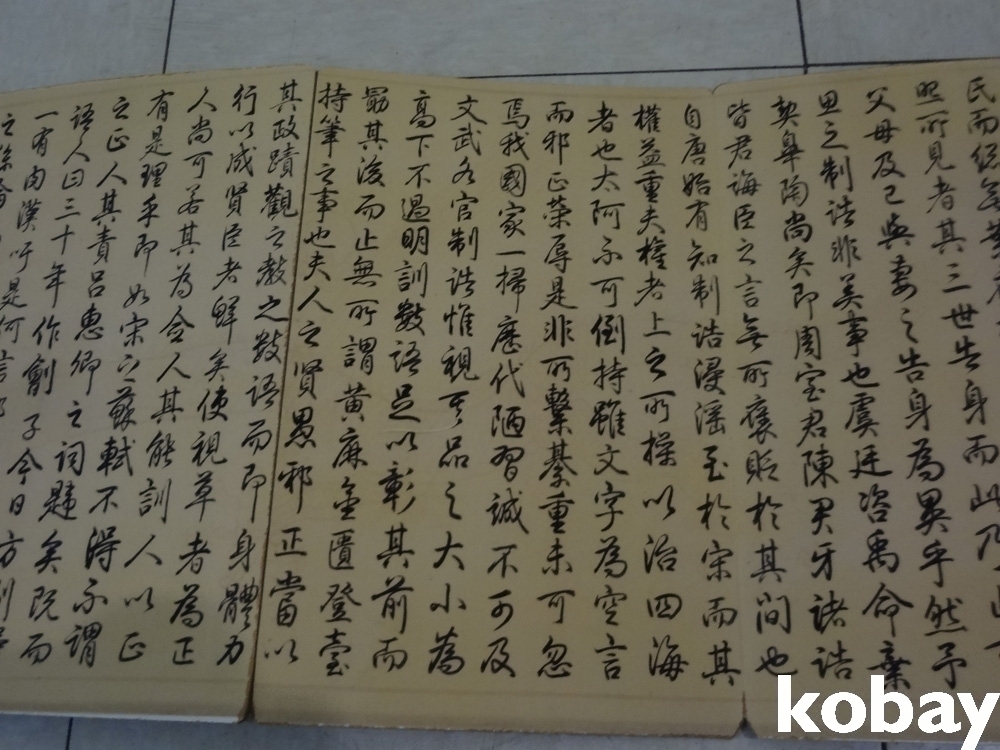 民而
照所見者其三世告身而此乃
父母及己與妻之告身為異乎然予
思之制誥非美事也虞廷咨禹命棄
契皋陶尚矣即周室君陳君牙諸誥
皆君誨臣之言無所褒貶於其間也
自唐始有知制誥浸淫至於宋而其
權益重夫權者上之所操以治四海
者也太阿不可倒持雖文字為空言
而邪正榮辱是非所繫綦重未可忽
焉我國家一掃歷代陋習誠不可及
文武各官制誥惟視其品之大小為
高下不過明訓數語足以彰其前而
勖其後而止無所謂黃麻金匱登臺
持筆之事也夫人之賢愚邪正當以
其政蹟觀之教之數語而即身體力
行以成賢臣者鮮矣使視草者為正
人尚可若其為僉人其能訓人以正
有是理乎即如宋之蘇軾不得不謂
之正人其責呂惠卿之詞韙矣既而
語人曰三十年作劊子今日方剮
一有肉漢吁是何言